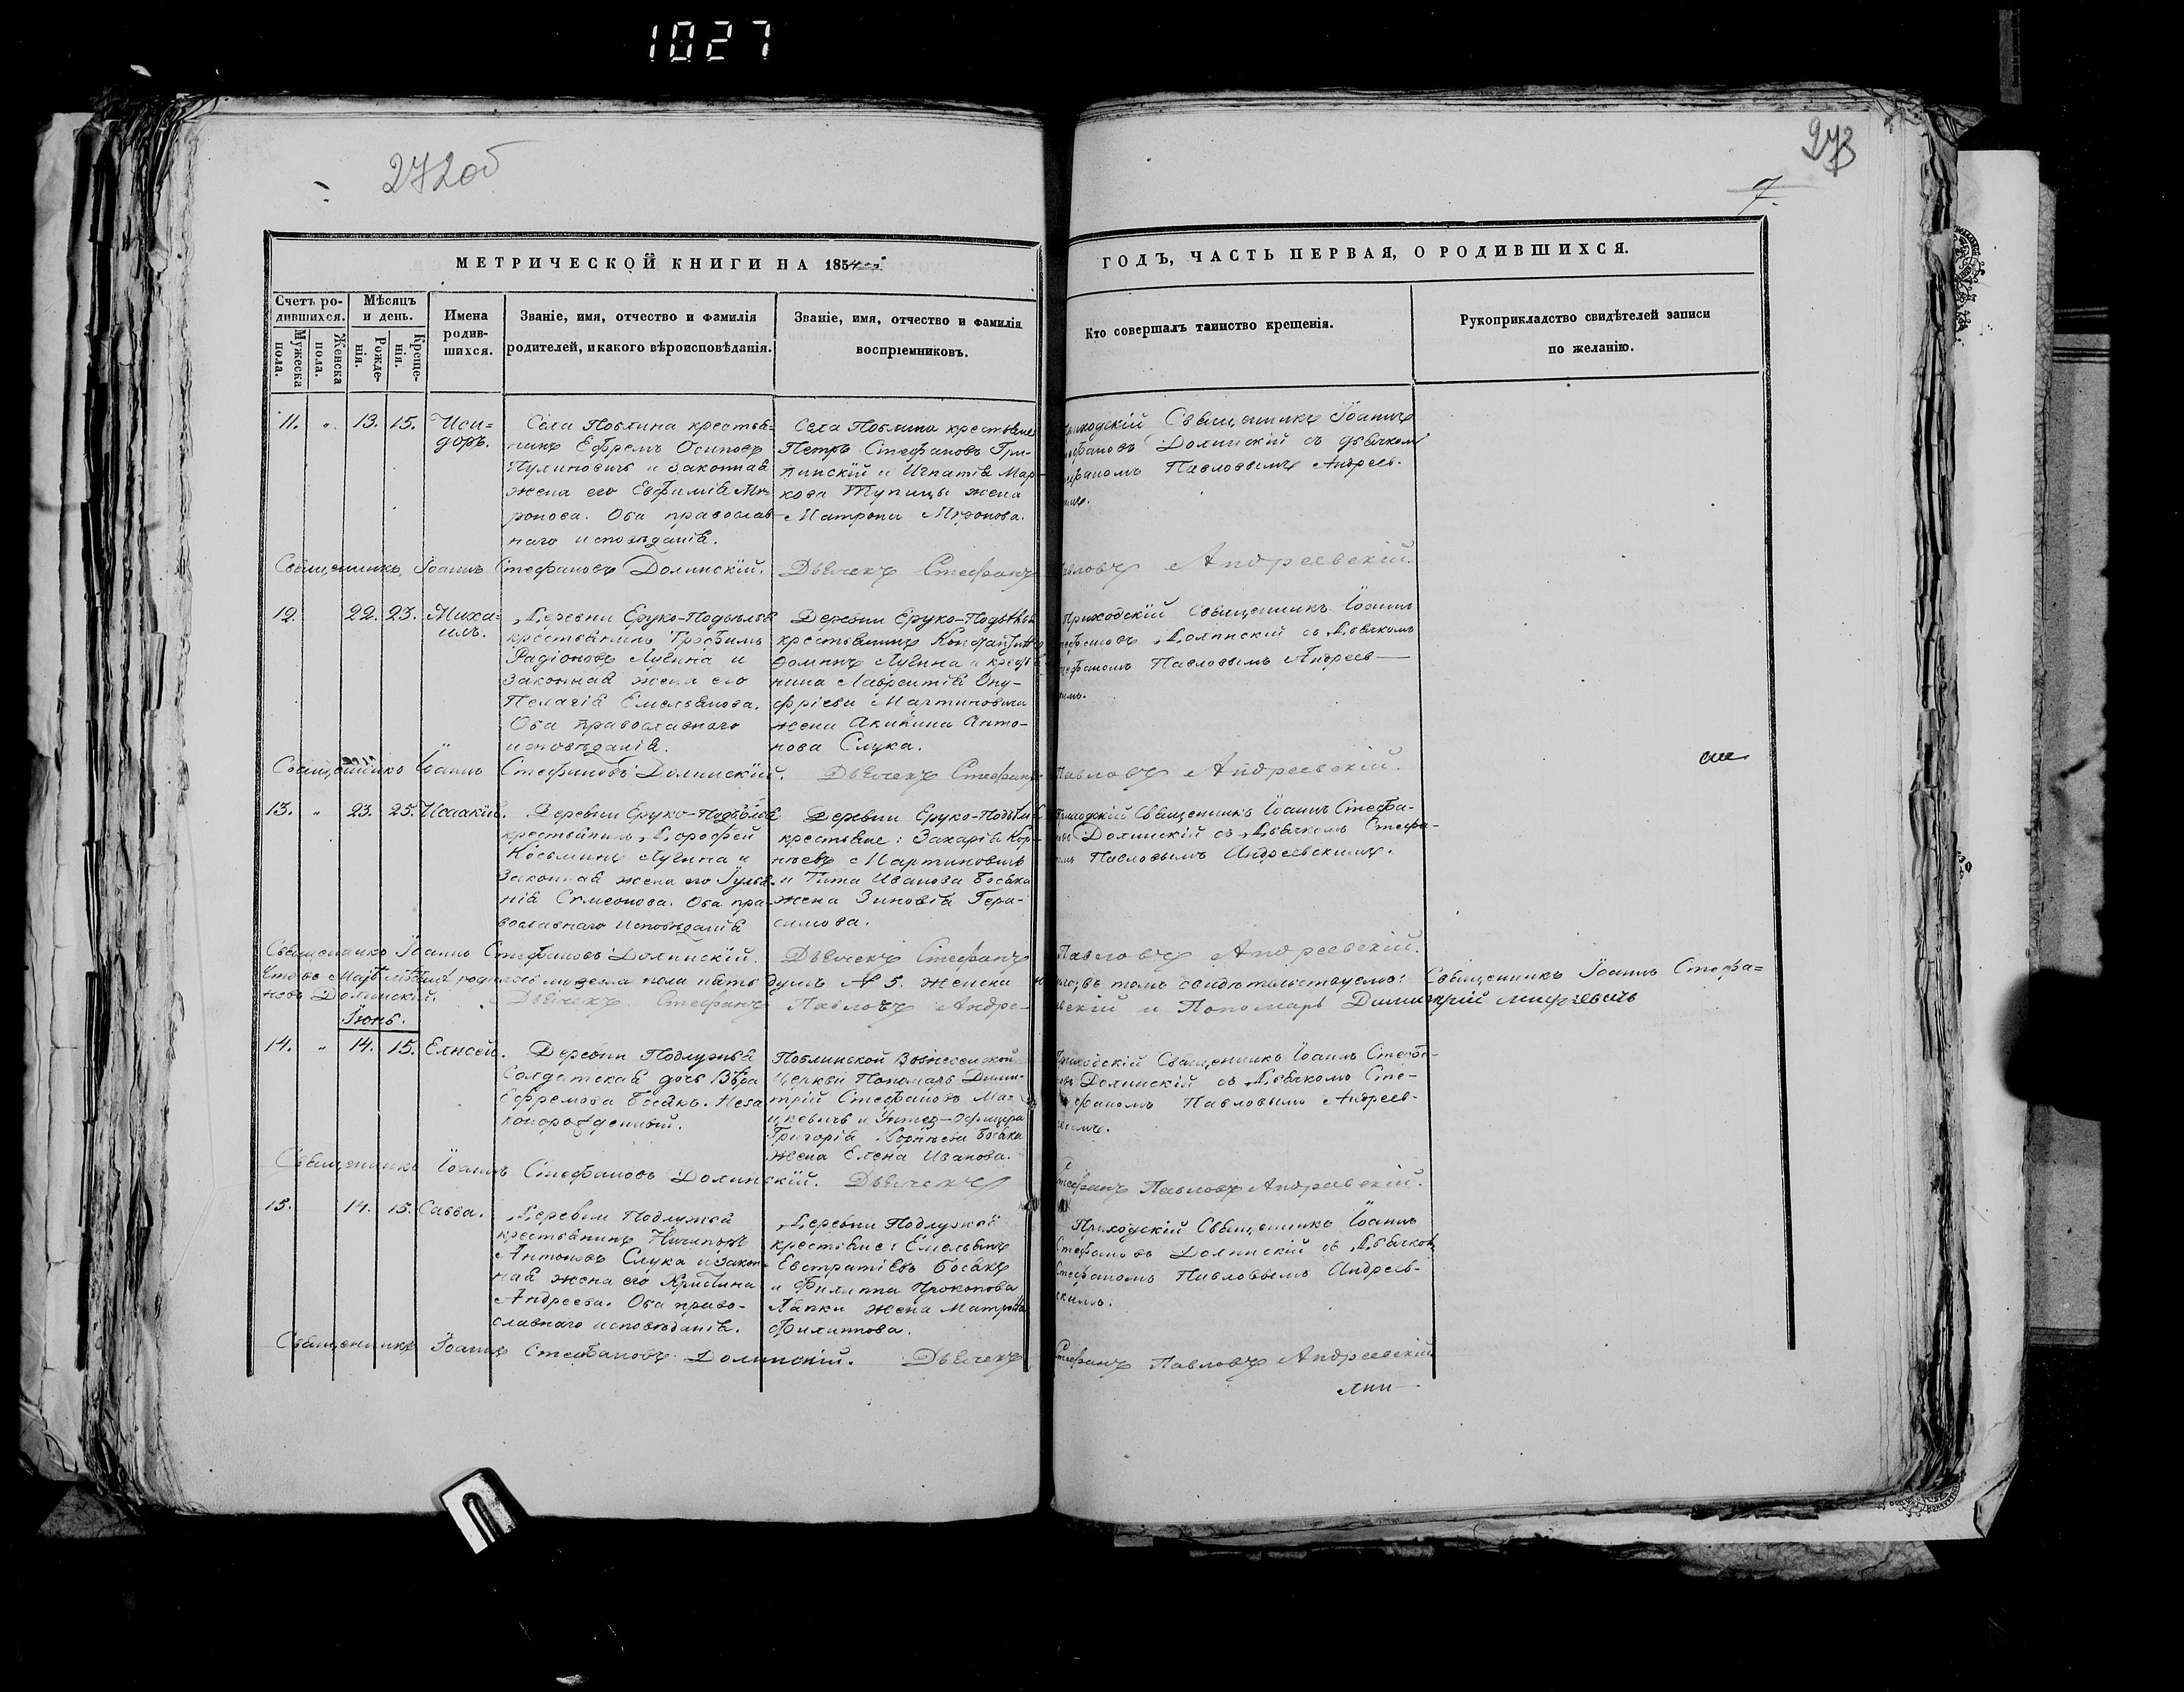 1027
272об
273
7.
МЕТРИЧЕСКОЙ КНИГИ НА 1854
ГОДЪ, ЧАСТЬ ПЕРВАЯ, О РОДИВШИХСЯ.
Счетъ ро-
дившихся.
Мужеска
пола.
Женска
пола.
Мѣсяцъ
и день.
Рожде-
нія.
Креще-
нія.
Имена
родив-
шихся.
Званіе, имя, отчество и фамилія
родителей, и какого вѣроисповѣданія.
Званіе, имя, отчество и фамилія
воспріемниковъ.
Кто совершалъ таинство крещенія.
Рукоприкладство свидѣтелей записи
по желанію.
11. 13. 15. Иси=
доръ.
Села Поблина крестья-
нинъ Ефремъ Осиповъ
Пулиновичъ и законная
жена его Евфимія Ми-
ронова. Оба православ-
наго исповѣданія.
Села Поблина крестьяне
Петръ Стефановъ Гри-
пинскій и Игнатія Мар-
кова Тупицы жена
Матрона Миронова.
Священникъ Іоаннъ
Стефановъ Долинскій съ дьячкомъ
Стефаномъ Павловымъ Андреев-
Священникъ Іоаннъ Стефановъ Долинскій. Дьячекъ Стефанъ Павловъ Андреевскій.
12. 22. 23. Миха=
илъ.
Деревни Еруко-Подѣлья
крестьянинъ Трофимъ
Радіоновъ Лугина и
законная жена его
Пелагія Емельянова.
Оба православнаго
исповѣданія.
Деревни Еруко-Подѣлья
крестьянинъ
Фоминъ Лугина и
Лаврентія Ону-
фріева Мартиновича
жена Акилина Анто-
нова Слука.
Приходскій Священникъ Іоаннъ
Стефановъ Долинскій съ Дьячкомъ
Стефаномъ Павловымъ Андреев-
Священникъ Іоаннъ Стефановъ Долинскій. Дьячекъ Стефанъ Павловъ Андреевскій.
13. 23. 25. Исаакій.
Деревни Еруко-Подѣлья
крестьянинъ Дорофей
Косьминъ Лугина и
законная жена его Іулья-
нія Симеонова. Оба пра-
вославнаго исповѣданія
Деревни Еруко-Подѣлья
крестьяне: Захарія Кор-
нѣевъ Мартиновичъ
и Тита Иванова Босяка
жена Зиновія Гера-
симова.
Приходскій Священникъ Іоаннъ Стефа-
новъ Долинскій съ Дьячкомъ Стефа-
номъ Павловымъ Андреевскимъ.
Священникъ Іоаннъ Стефановъ Долинскій. Дьячекъ Стефанъ Павловъ Андреевскій.
Что въ Маѣ мѣсяцѣ родилось мужеска пола пять душъ № 5. женска въ томъ свидѣтельствуемъ: Священникъ Іоаннъ Стефа=
новъ Долинскій. Дьячекъ Стефанъ Павловъ Андреевскій и Пономарь Димитрій
Іюнь.
14. 14. 15. Елисей.
Деревни Подлужья
Солдатская дочь Вѣра
Ефремова Босякъ. Неза
конорожденный.
Поблинской Вознесенской
Церкви Пономарь Дими-
трій Стефановъ Ма-
цкевичъ и Унтер-Офицера
Григорія Корнѣева Босяка
жена Елена Иванова.
Приходскій Священникъ Іоаннъ Стефа-
новъ Долинскій съ Дьячкомъ Сте-
фаномъ Павловымъ Андреев-
Священникъ Іоаннъ Стефановъ Долинскій. Дьячекъ Стефанъ Павловъ Андреевскій.
15. 14. 15. Савва.
Деревни Подлужья
крестьянинъ Ничипоръ
Антоновъ Слука и закон-
ная жена его Христина
Андреева. Оба право-
славнаго исповѣданія.
Деревни Подлужья
крестьяне: Емельянъ
Евстратіевъ Босякъ
и Филиппа Прокопова
Лапки жена Матрона
Филиппова.
Приходскій Священникъ Іоаннъ
Стефановъ Долинскій съ Дьячкомъ
Стефаномъ Павловымъ Андреев-
скимъ.
Священникъ Іоаннъ Стефановъ Долинскій. Дьячекъ Стефанъ Павловъ Андреевскій